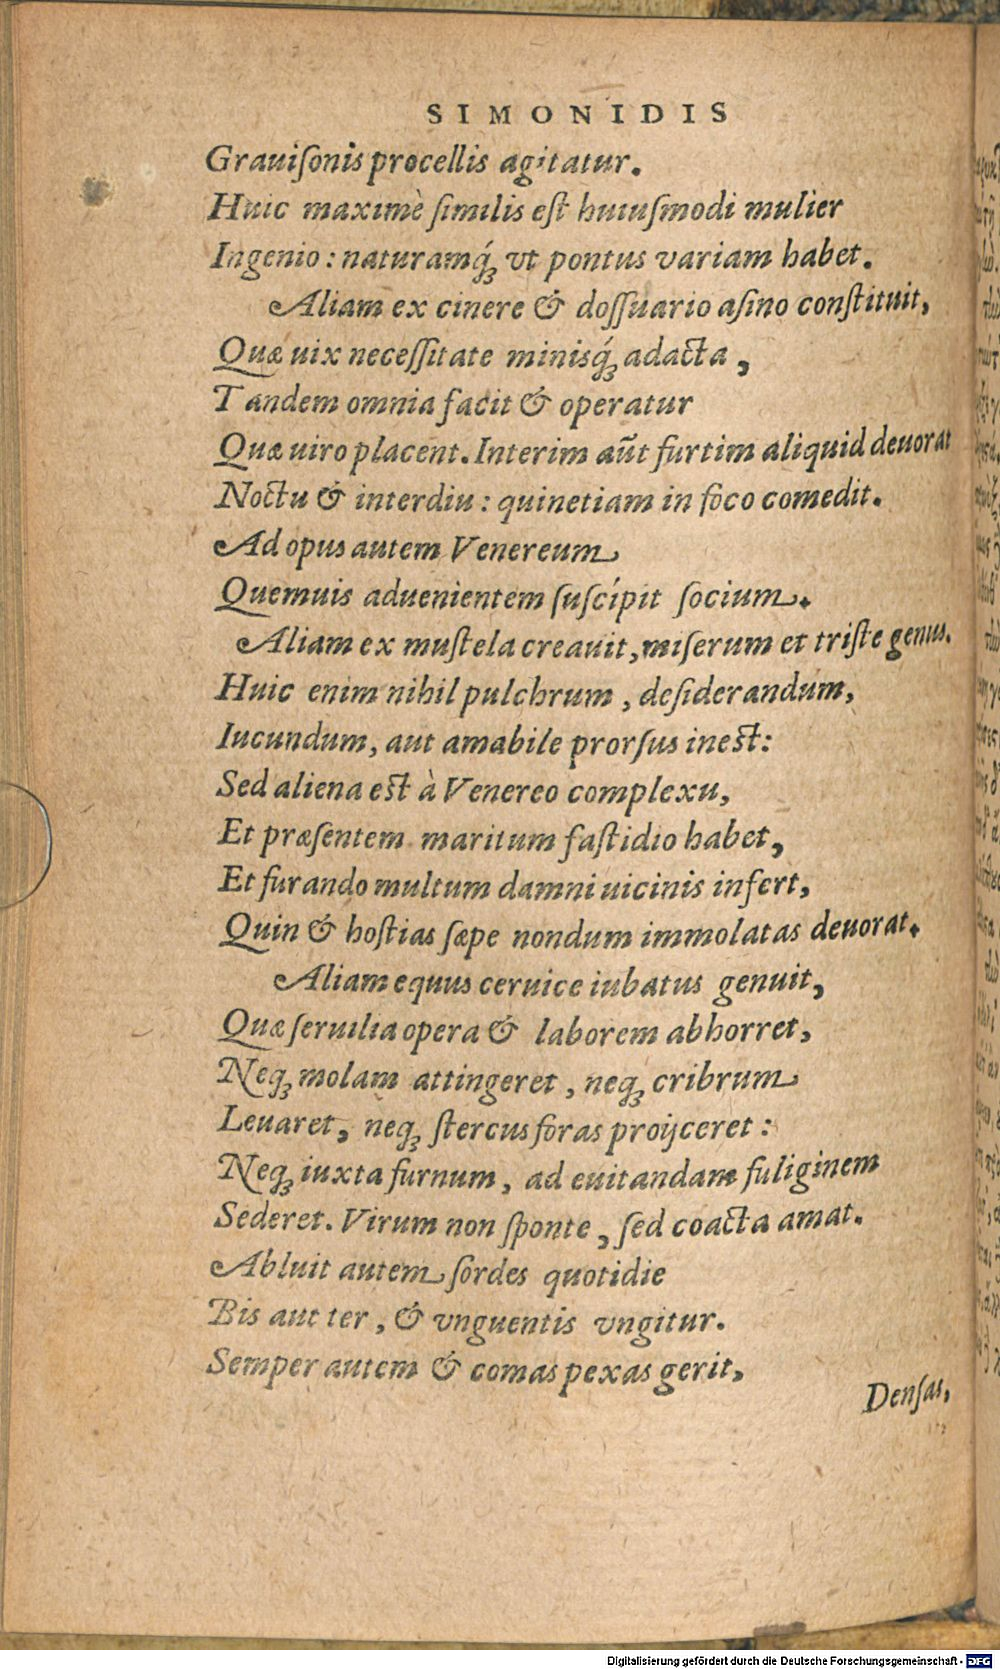 SIMONIDIS
Grauiſonis procellis agitatur.
Huic maximè ſimilis eſt huiuſmodi mulier
Ingenio: naturamq́ꝫ vt pontus variam habet.
Aliam ex cinere & doſſuario aſino conſtituit,
Quæ uix neceſſitate minisq́ꝫ adacta,
Tandem omnia facit & operatur
Quæ uiro placent. Interim aūt furtim aliquid deuorat
Noctu & interdiu: quinetiam in foco comedit.
Ad opus autem Venereum
Quemuis aduenientem ſuſcipit ſocium.
Aliam ex muſtela creauit, miſerum et triſte genus.
Huic enim nihil pulchrum, deſiderandum,
Iucundum, aut amabile prorſus ineſt:
Sed aliena eſt à Venereo complexu,
Et præſentem maritum faſtidio habet,
Et furando multum damni uicinis infert,
Quin & hoſtias ſæpe nondum immolatas deuorat.
Aliam equus ceruice iubatus genuit,
Quæ ſeruilia opera & laborem abhorret,
Neqꝫ molam attingeret, neqꝫ cribrum
Leuaret, neqꝫ ſtercus foras proijceret:
Neqꝫ iuxta furnum, ad euitandam fuliginem
Sederet. Virum non ſponte, ſed coacta amat.
Abluit autem ſordes quotidie
Bis aut ter, & vnguentis vngitur.
Semper autem & comas pexas gerit,
Denſas,
Digitalisierung gefördert durch die Deutsche Forschungsgemeinschaft - DFG